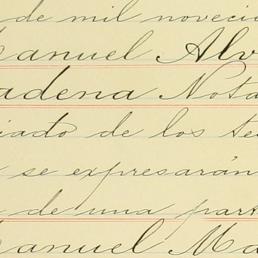 de mil novecie
anuel Alv
adena Nota
iado de los te
se expresarán
de una part
anuel Ma